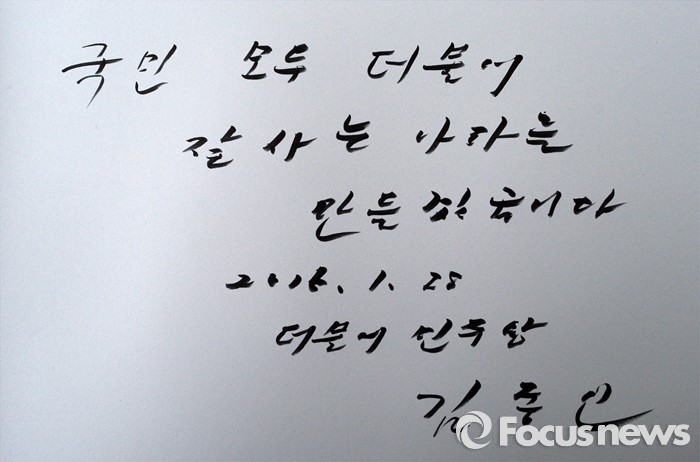 국민 모두 더불어
잘 사는 나라를
만들겠습니다
2016. 1. 28
더불어 민주당
김종인
Focusnews